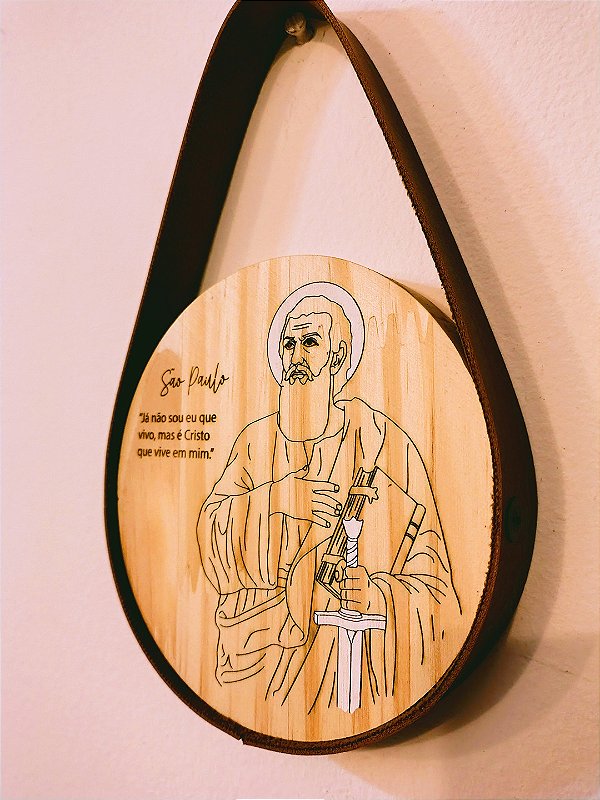 São Paulo
"Já não sou eu que
vivo, mas é Cristo
que vive em mim."